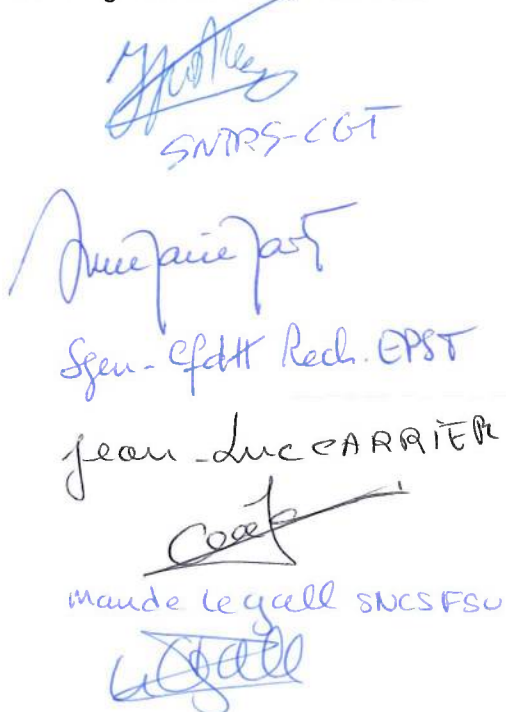 SNTRS-CGT
Sgen-CfdT Rech. EPST
jean-Luc CARRIER
Maude Le gall SNCS FSU
Le Gall